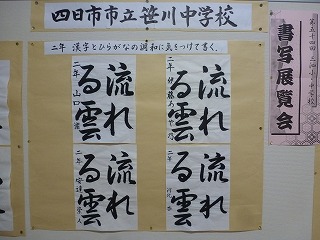 四日市市立笹川中学校
二年 漢字とひらがなの調和に気をつけて書く。
流れる雲
二年 伊藤
流れる雲
二年 山口
流れる雲
二年
流れる雲
二年 安達
書写展覧会